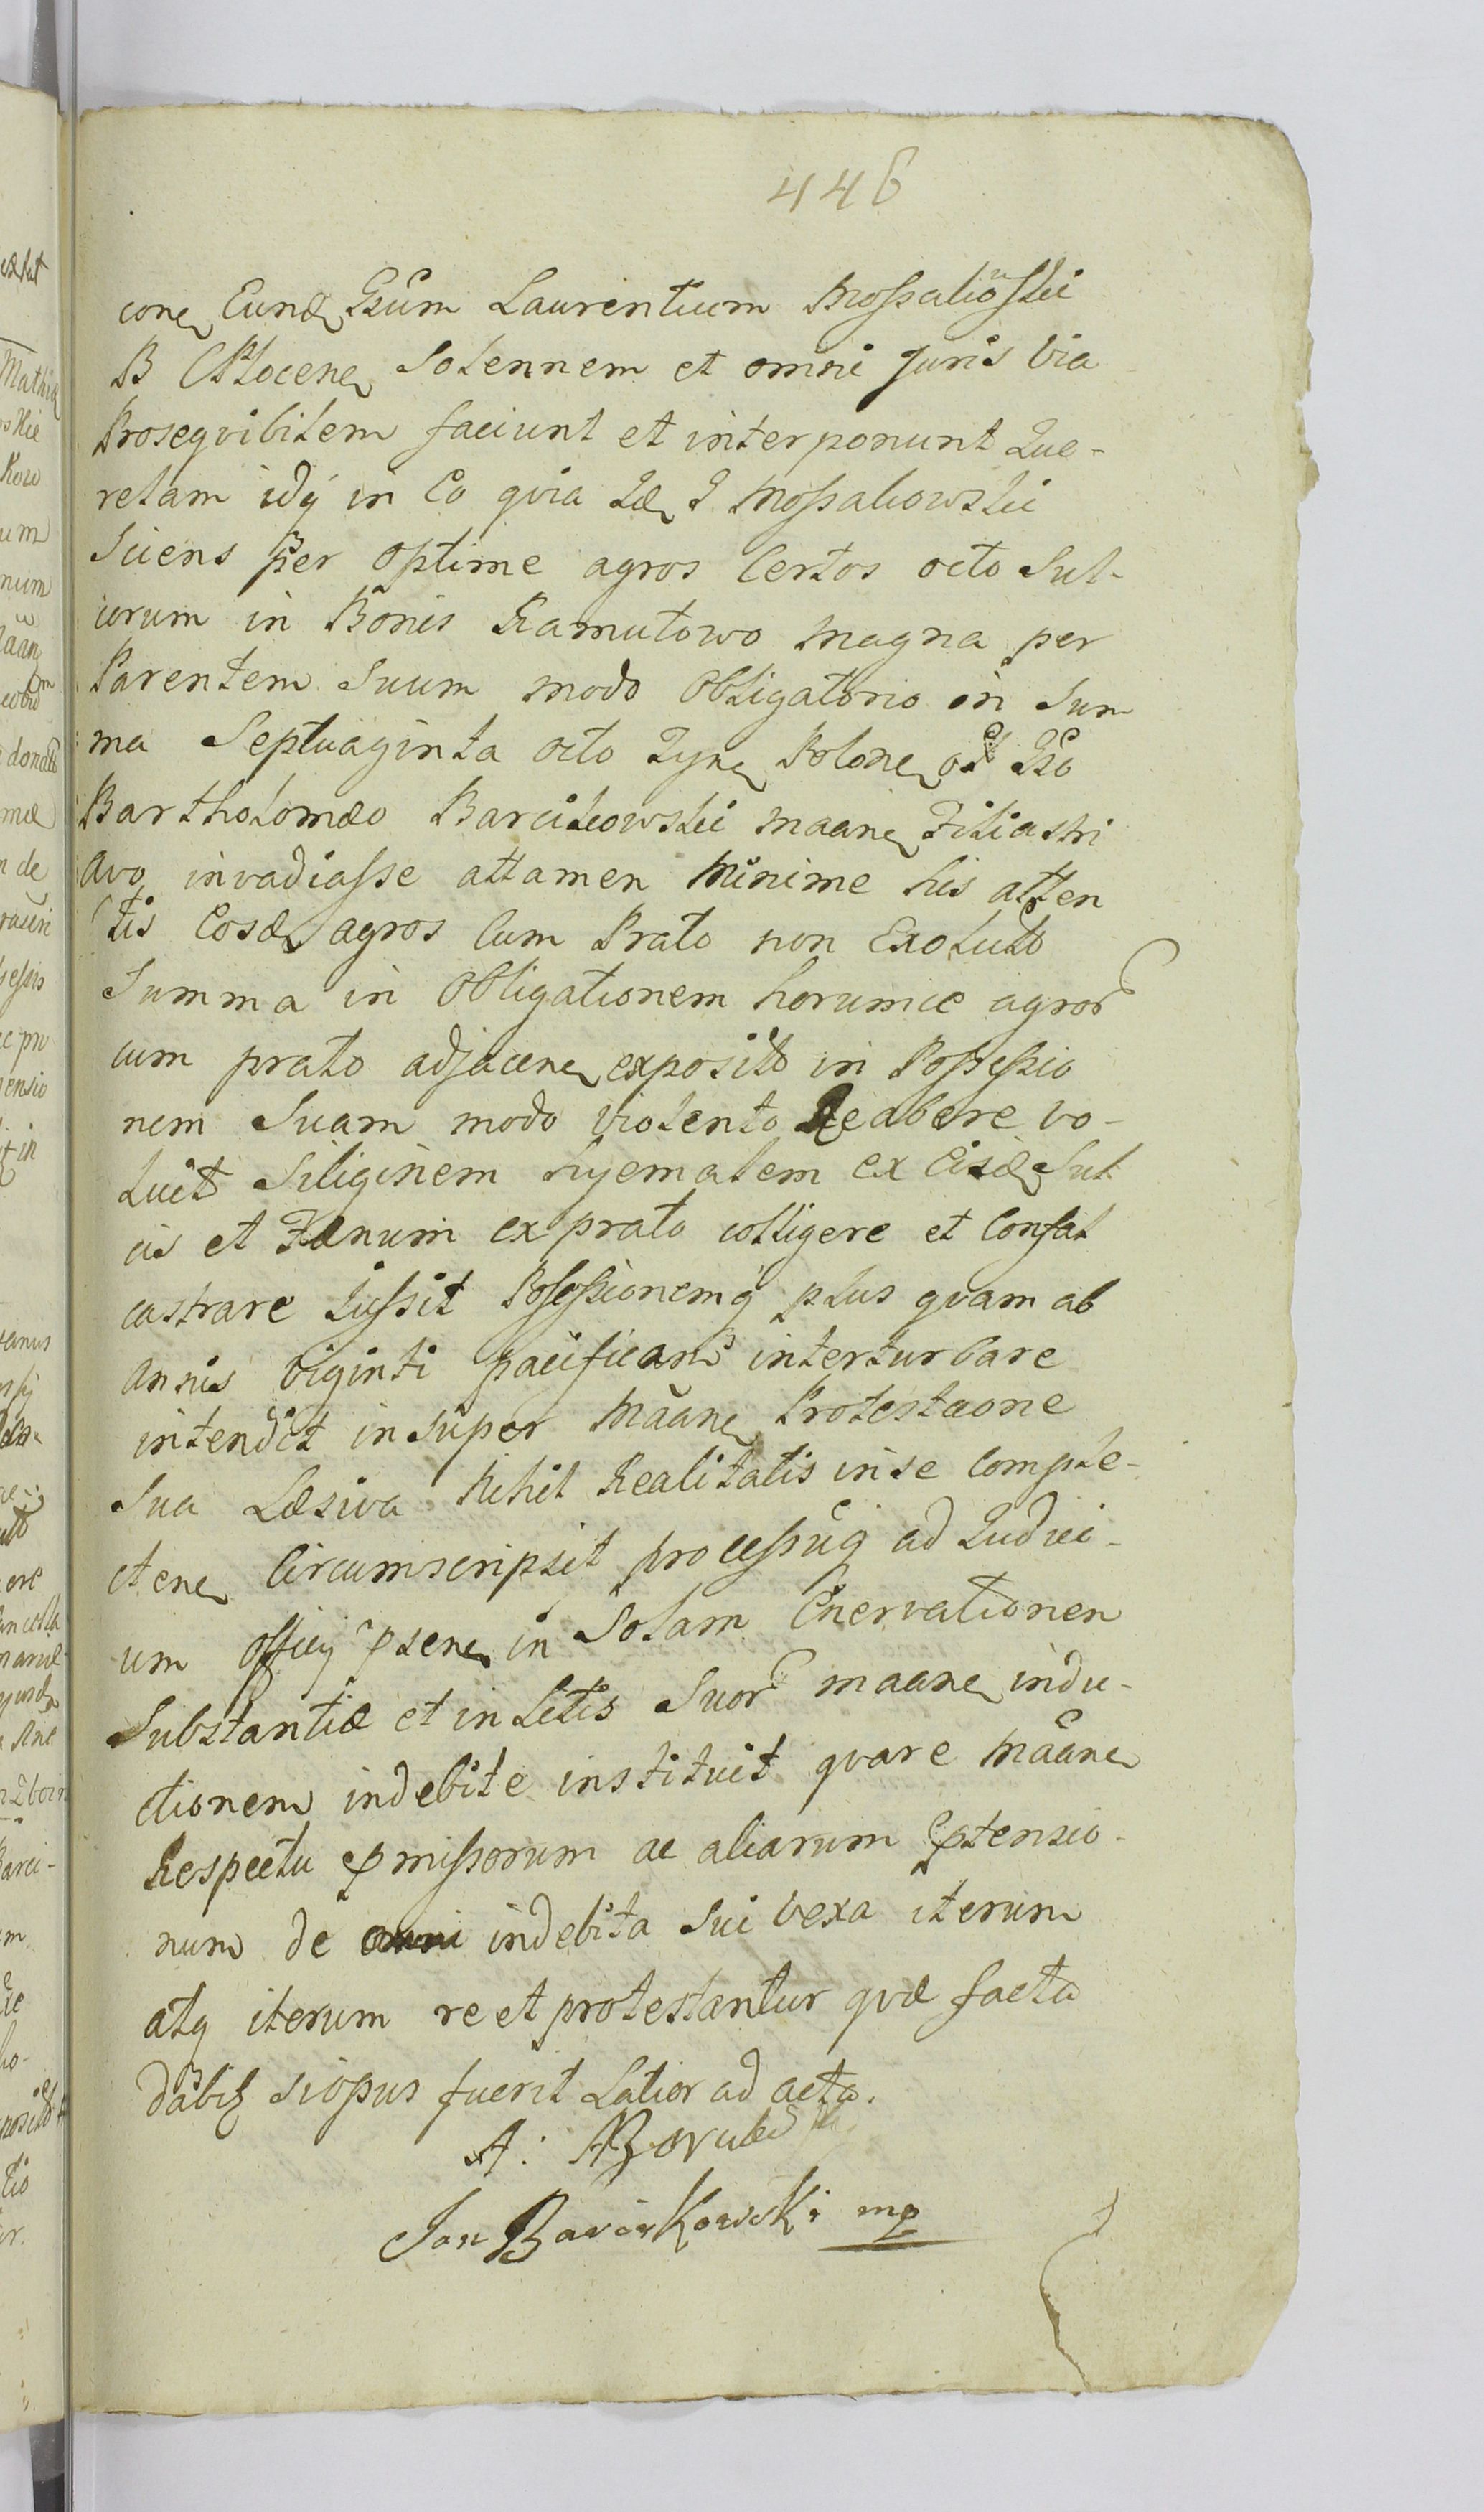 446
cone Eund Gsum Laurentium Mossakowski
B CPlocene Solennem et omni Juris Via
Prosequibilem faciunt et interponunt Que-
relam idq in Eo quia Id G Mossakowski
Sciens per optime agros Certos octo Sul-
corum in Bonis Ramutowo Magna per
Parentem Suum modo Obligatorio in Sum
ma Septuaginta octo Tyne Polone Gso
Bartholomæo Barcikowski maane Filiastri
Avo invadiasse attamen Minime his atten
tis Eosd agros Cum Prato non Exoluto
Summa in Obligationem horumce agror
cum prato adjacene exposito in Possessio
nem Suam modo violento Redbere vo-
luit Siliginem hyemalem ex Eisd Sul
cis et Fænum ex prato colligere et Confal
castrare Jussit Possessionemq plus quam ab
Annis Viginti pacificam interturbare
intendit insuper Mãane Protestaone
Sua Læsiva Nihil Realitatis in se Comple-
ctene Circumscripsit processuq ad Judici-
um Officij psene in Solam Enervationem
Substantiæ et in Letis Suor maane indu-
ctionem indebite instituit quare Mãane
Respectu pmissorum ac aliarum ptensio-
num de omni indebita Sui vexa iterum
atq iterum re et protestantur qvæ facta
dabit si opus fuerit Latior ad acta.
Jan Barcikowski mp